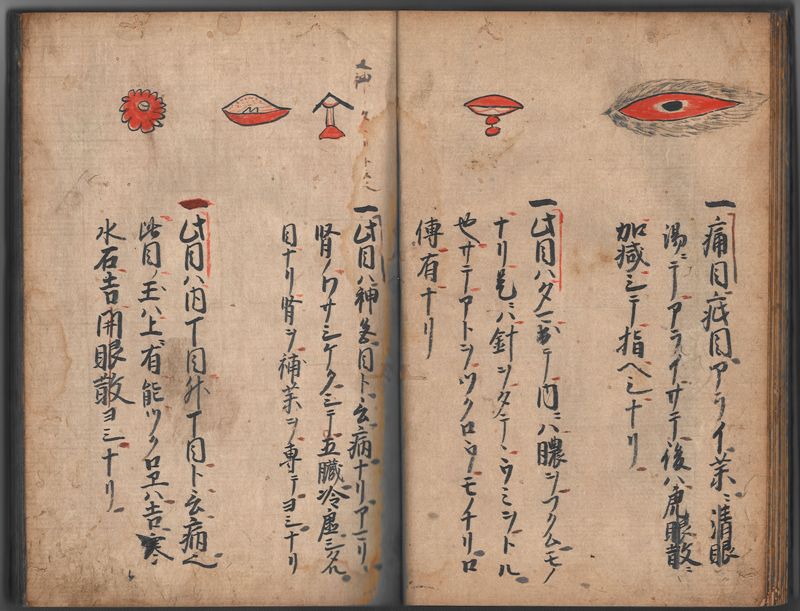 一 痛目疵目アライ薬ニ清眼
湯ニテアライサテ後ハ虎眼散ニ
加減シテ指ヘシナリ
一 此目ハタヽ出テ内ニハ膿ンフクムモノ
ナリ是ニハ針ンタテヽウミントル
也サテアトンツクロウモノナリロ
傳有ナリ
一 此目ハ神 目ト云病ナリアマリ
腎ノワサシケクシテ五臓冷虚シタル
目ナリ腎ヲ補薬ヲ専テヨシナリ
一 此目ハ内丁目外丁目ト云病ヘ
此目ノ玉ハ上ニ有能ツクロヱハ吉寒
水石吉開眼散ヨシナリ